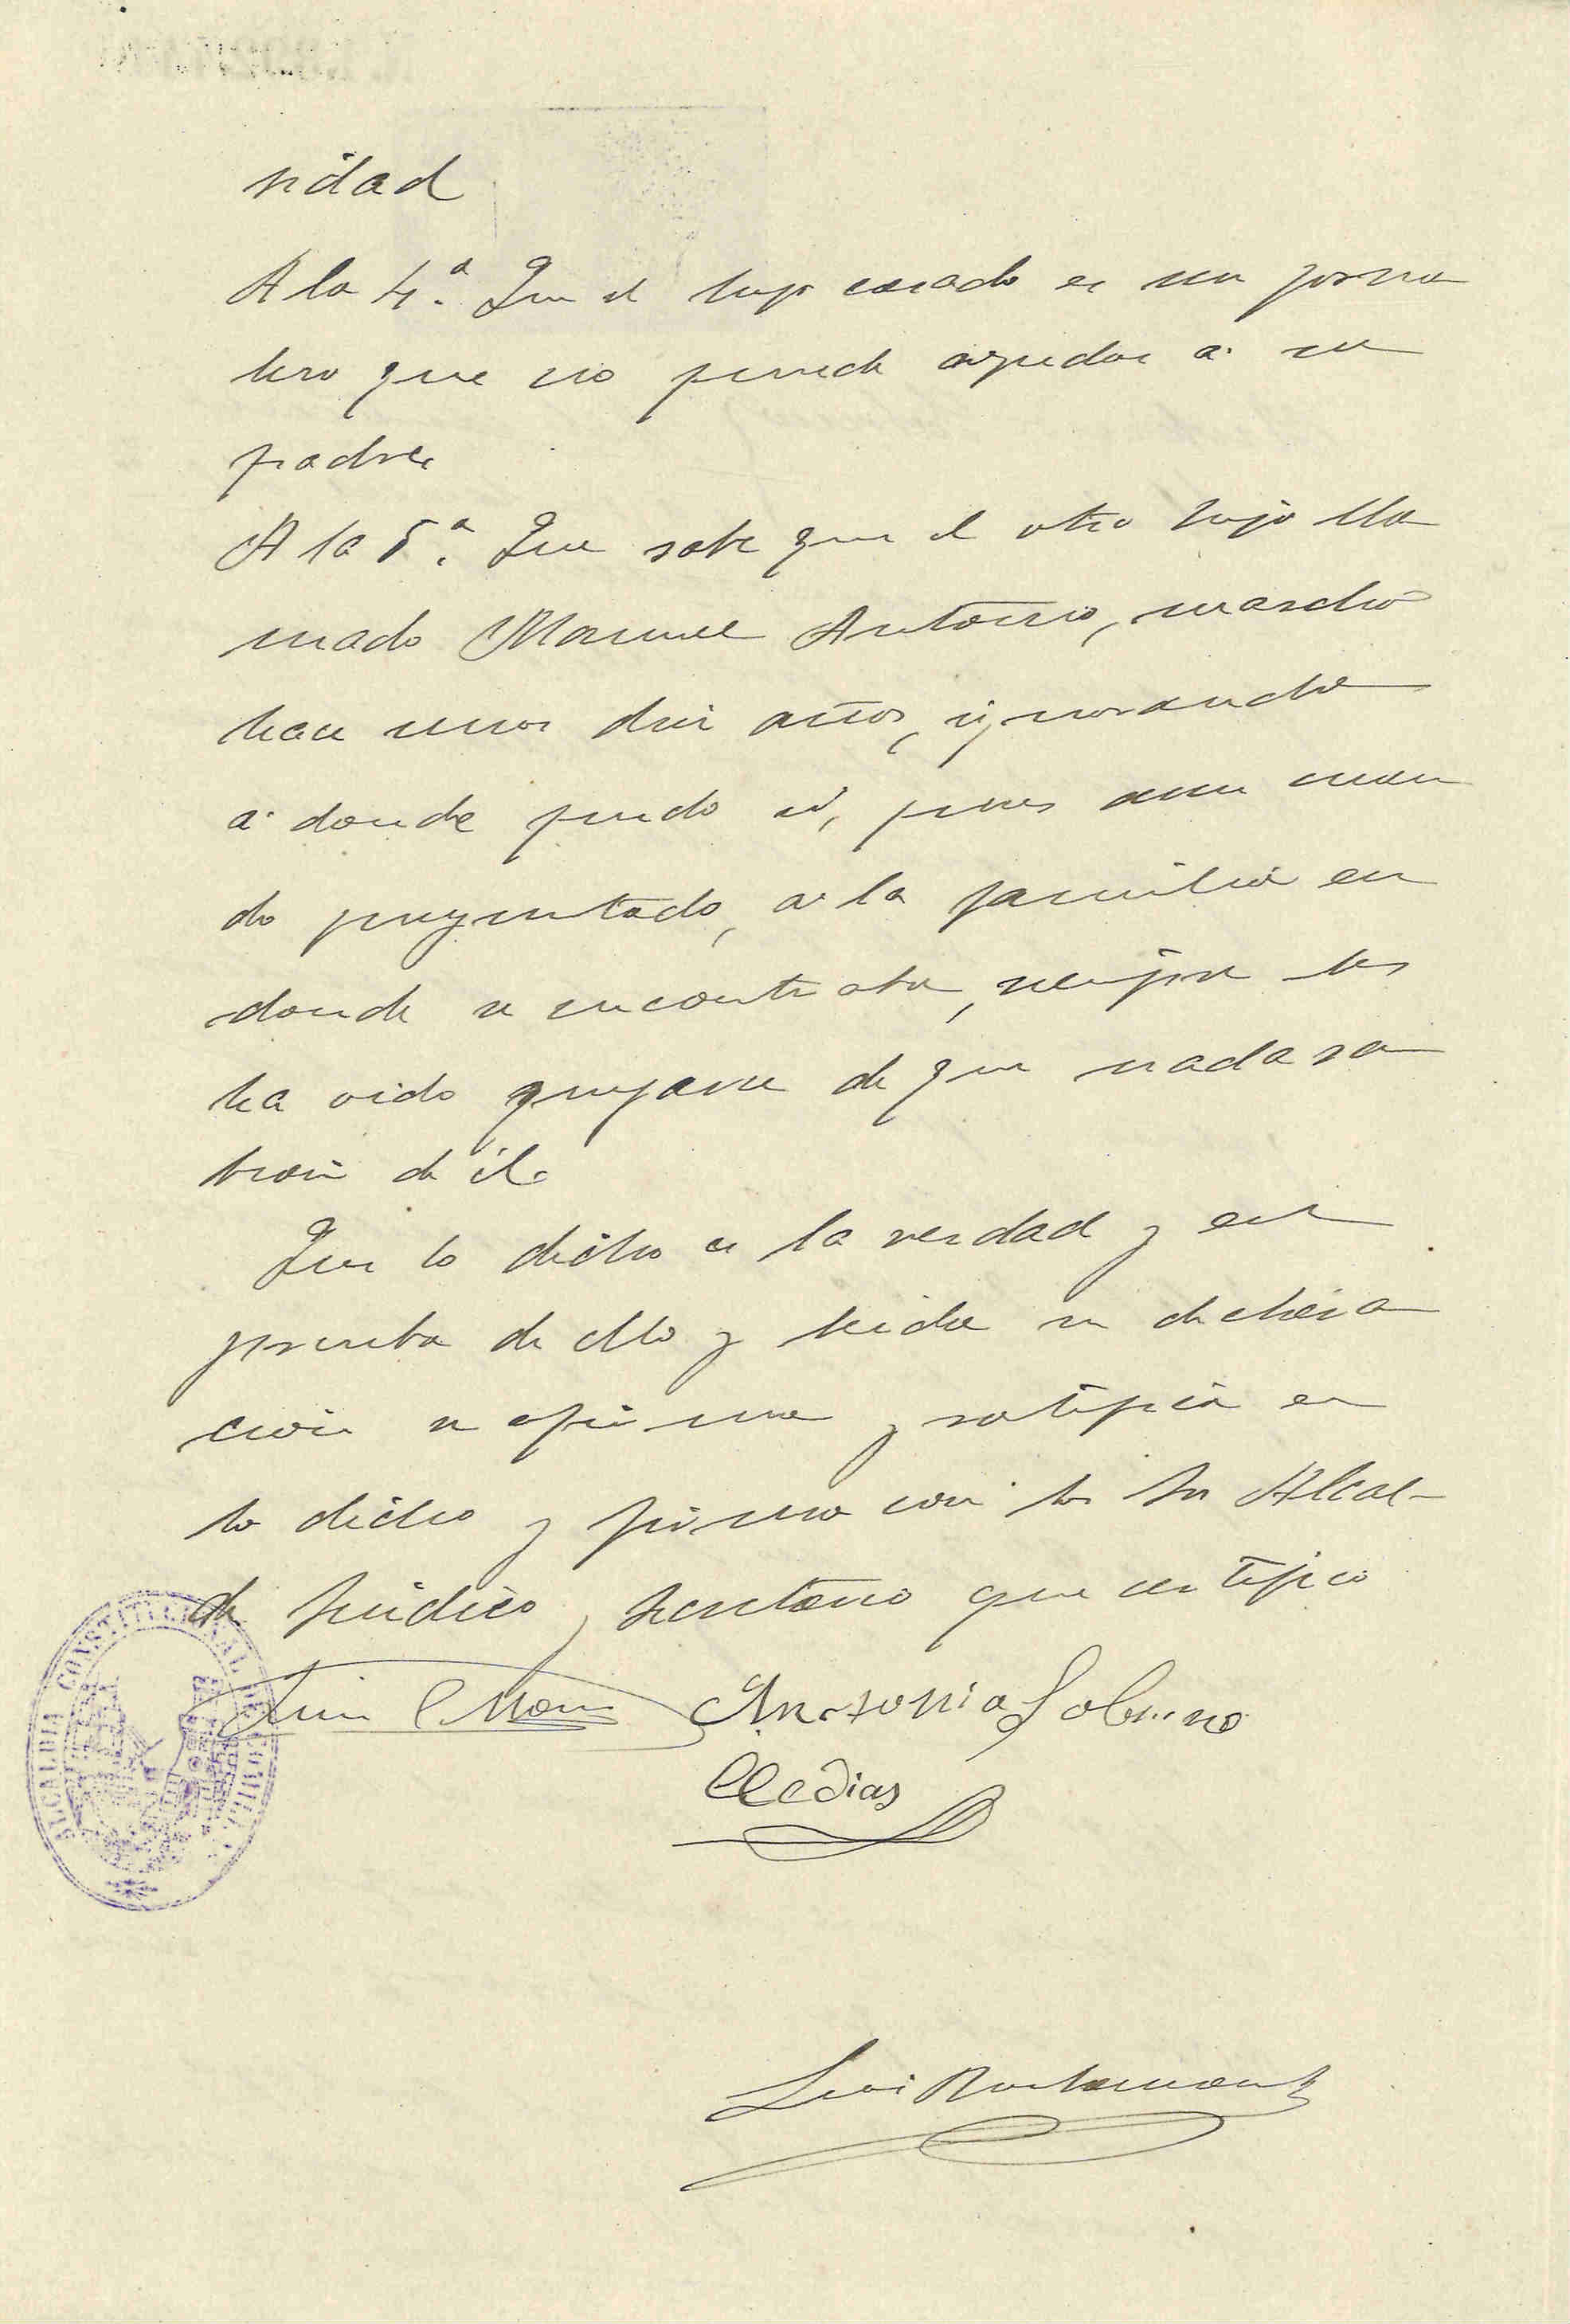 sidad
A la 4.ª Que el hijo casado es un jorna
lero que no puede ayudar a su
padre
A la 5.ª Que sabe que el otro hijo lla
mado Manuel Antonio, marchó
hace unos diez años, ignorando
a donde pudo ir, pues aun cuan
do preguntado, a la familia en
donde se encontraba, siempre les
ha oido quejarse de que nada sa
bian de él.
Que lo dicho es la verdad y en
prueba de ello y leida su declara
cion se afirma y ratifica en
lo dicho y firma con los Sres Alcal-
de Sindico y Secretario que certifico
Antonio Sobrino
Luis
ALCALDIA CONSTITUCIONAL DE